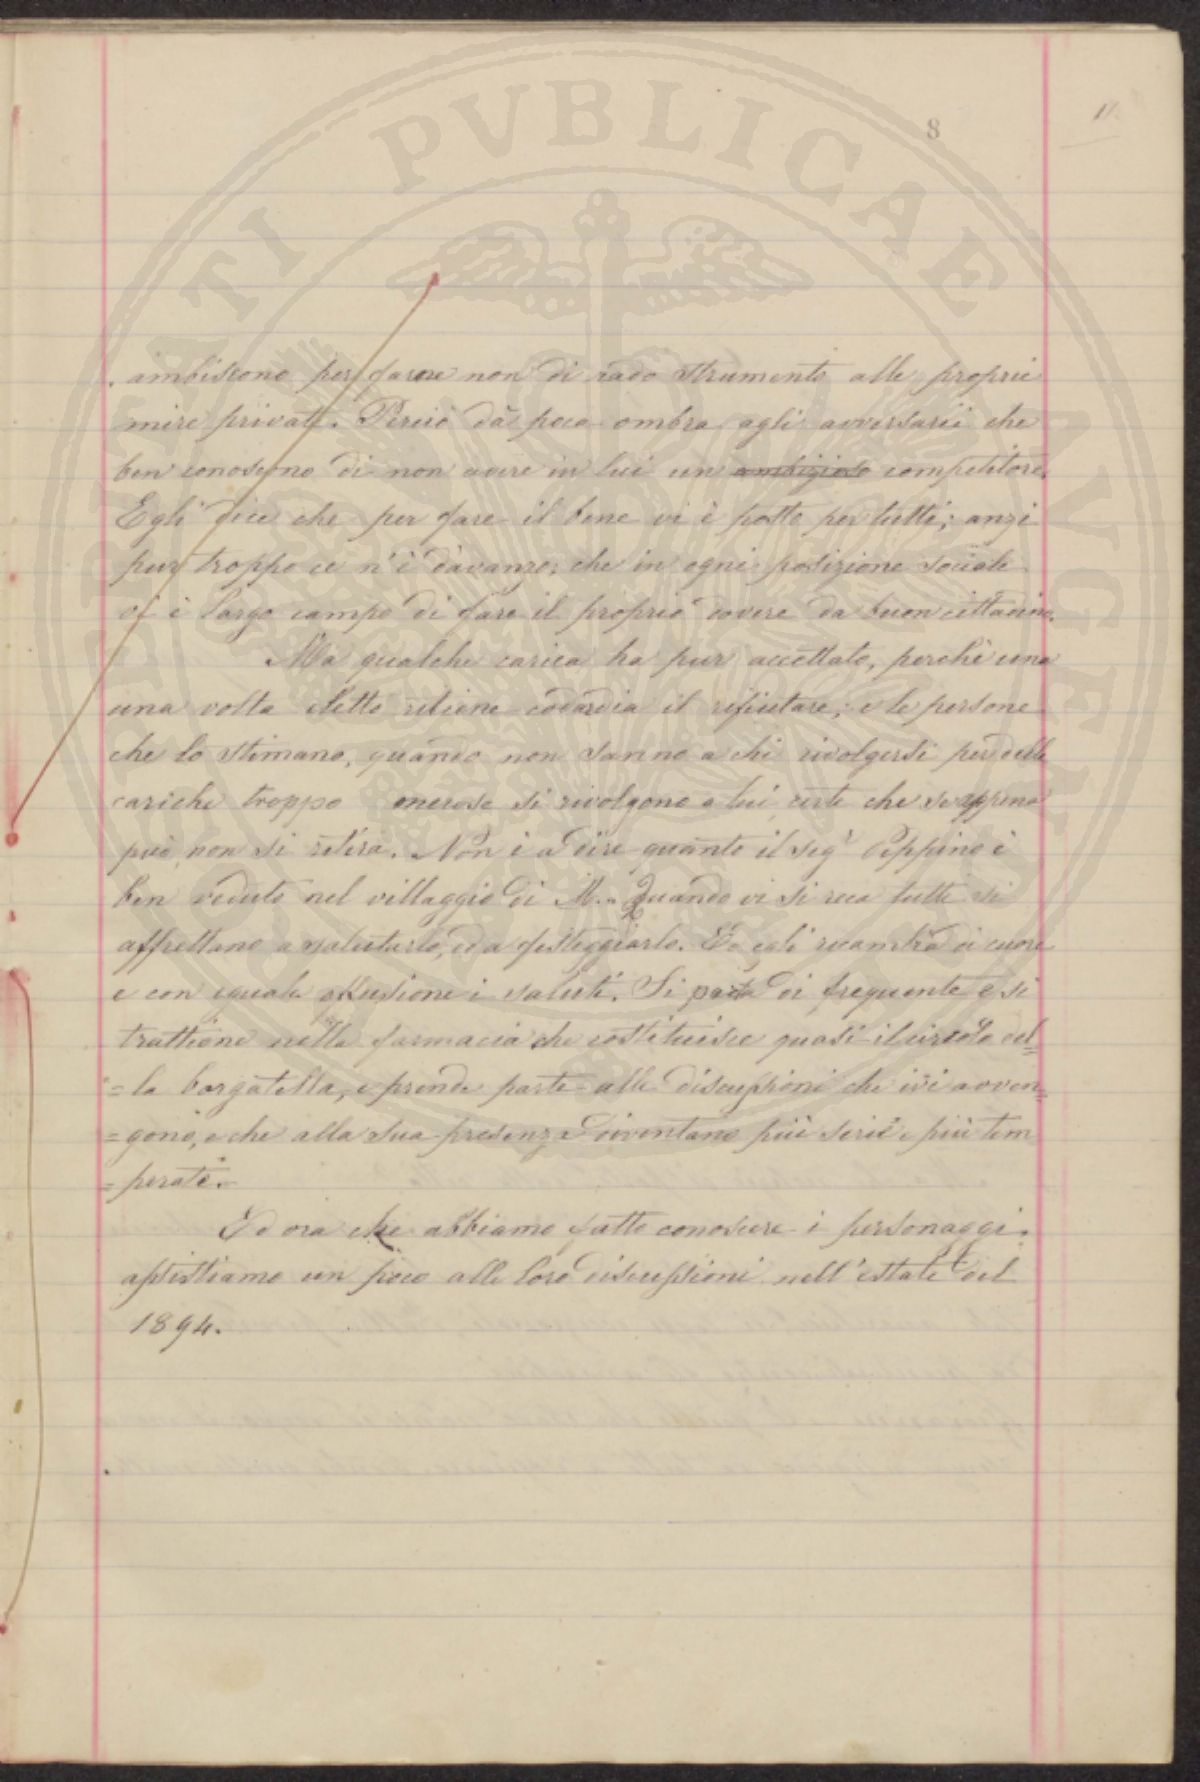 PVBLICAE
8
11
ambiscono per farne non di rado strumento alle proprie
mire private. Perciò dà poca ombra agli avversarii che
ben conoscono di non avere in lui un ambizioso competitore.
Egli dice che per fare il bene vi è posto per tutti; anzi
pur troppo ce n'è d'avanzo; che in ogni posizione sociale
vi è largo campo di fare il proprio dovere da buon cittadino.
Ma qualche carica ha pur accettato, perchè una
una volta eletto ritiene codardia il rifiutare; e le persone
che lo stimano, quando non sanno a chi rivolgersi per delle
cariche troppo onerose si rivolgono a lui, certe che se appena
può, non si ritira. Non è a dire quanto il sigr Peppino è
ben veduto nel villaggio di M.. Quando vi si reca tutti si
affrettano a salutarlo, ed a festeggiarlo. Ed egli ricambia di cuore
e con eguale effusione i saluti. Si porta di frequente e si
trattiene nella farmacia che costituisce quasi il circolo del=
=la borgatella, e prende parte alle discussioni che ivi avven=
=gono, e che alla sua presenza diventano più serie e più tem
=perate.
Ed ora che abbiamo fatto conoscere i personaggi.
assistiamo un poco alle loro discussioni nell'estate del
1894.